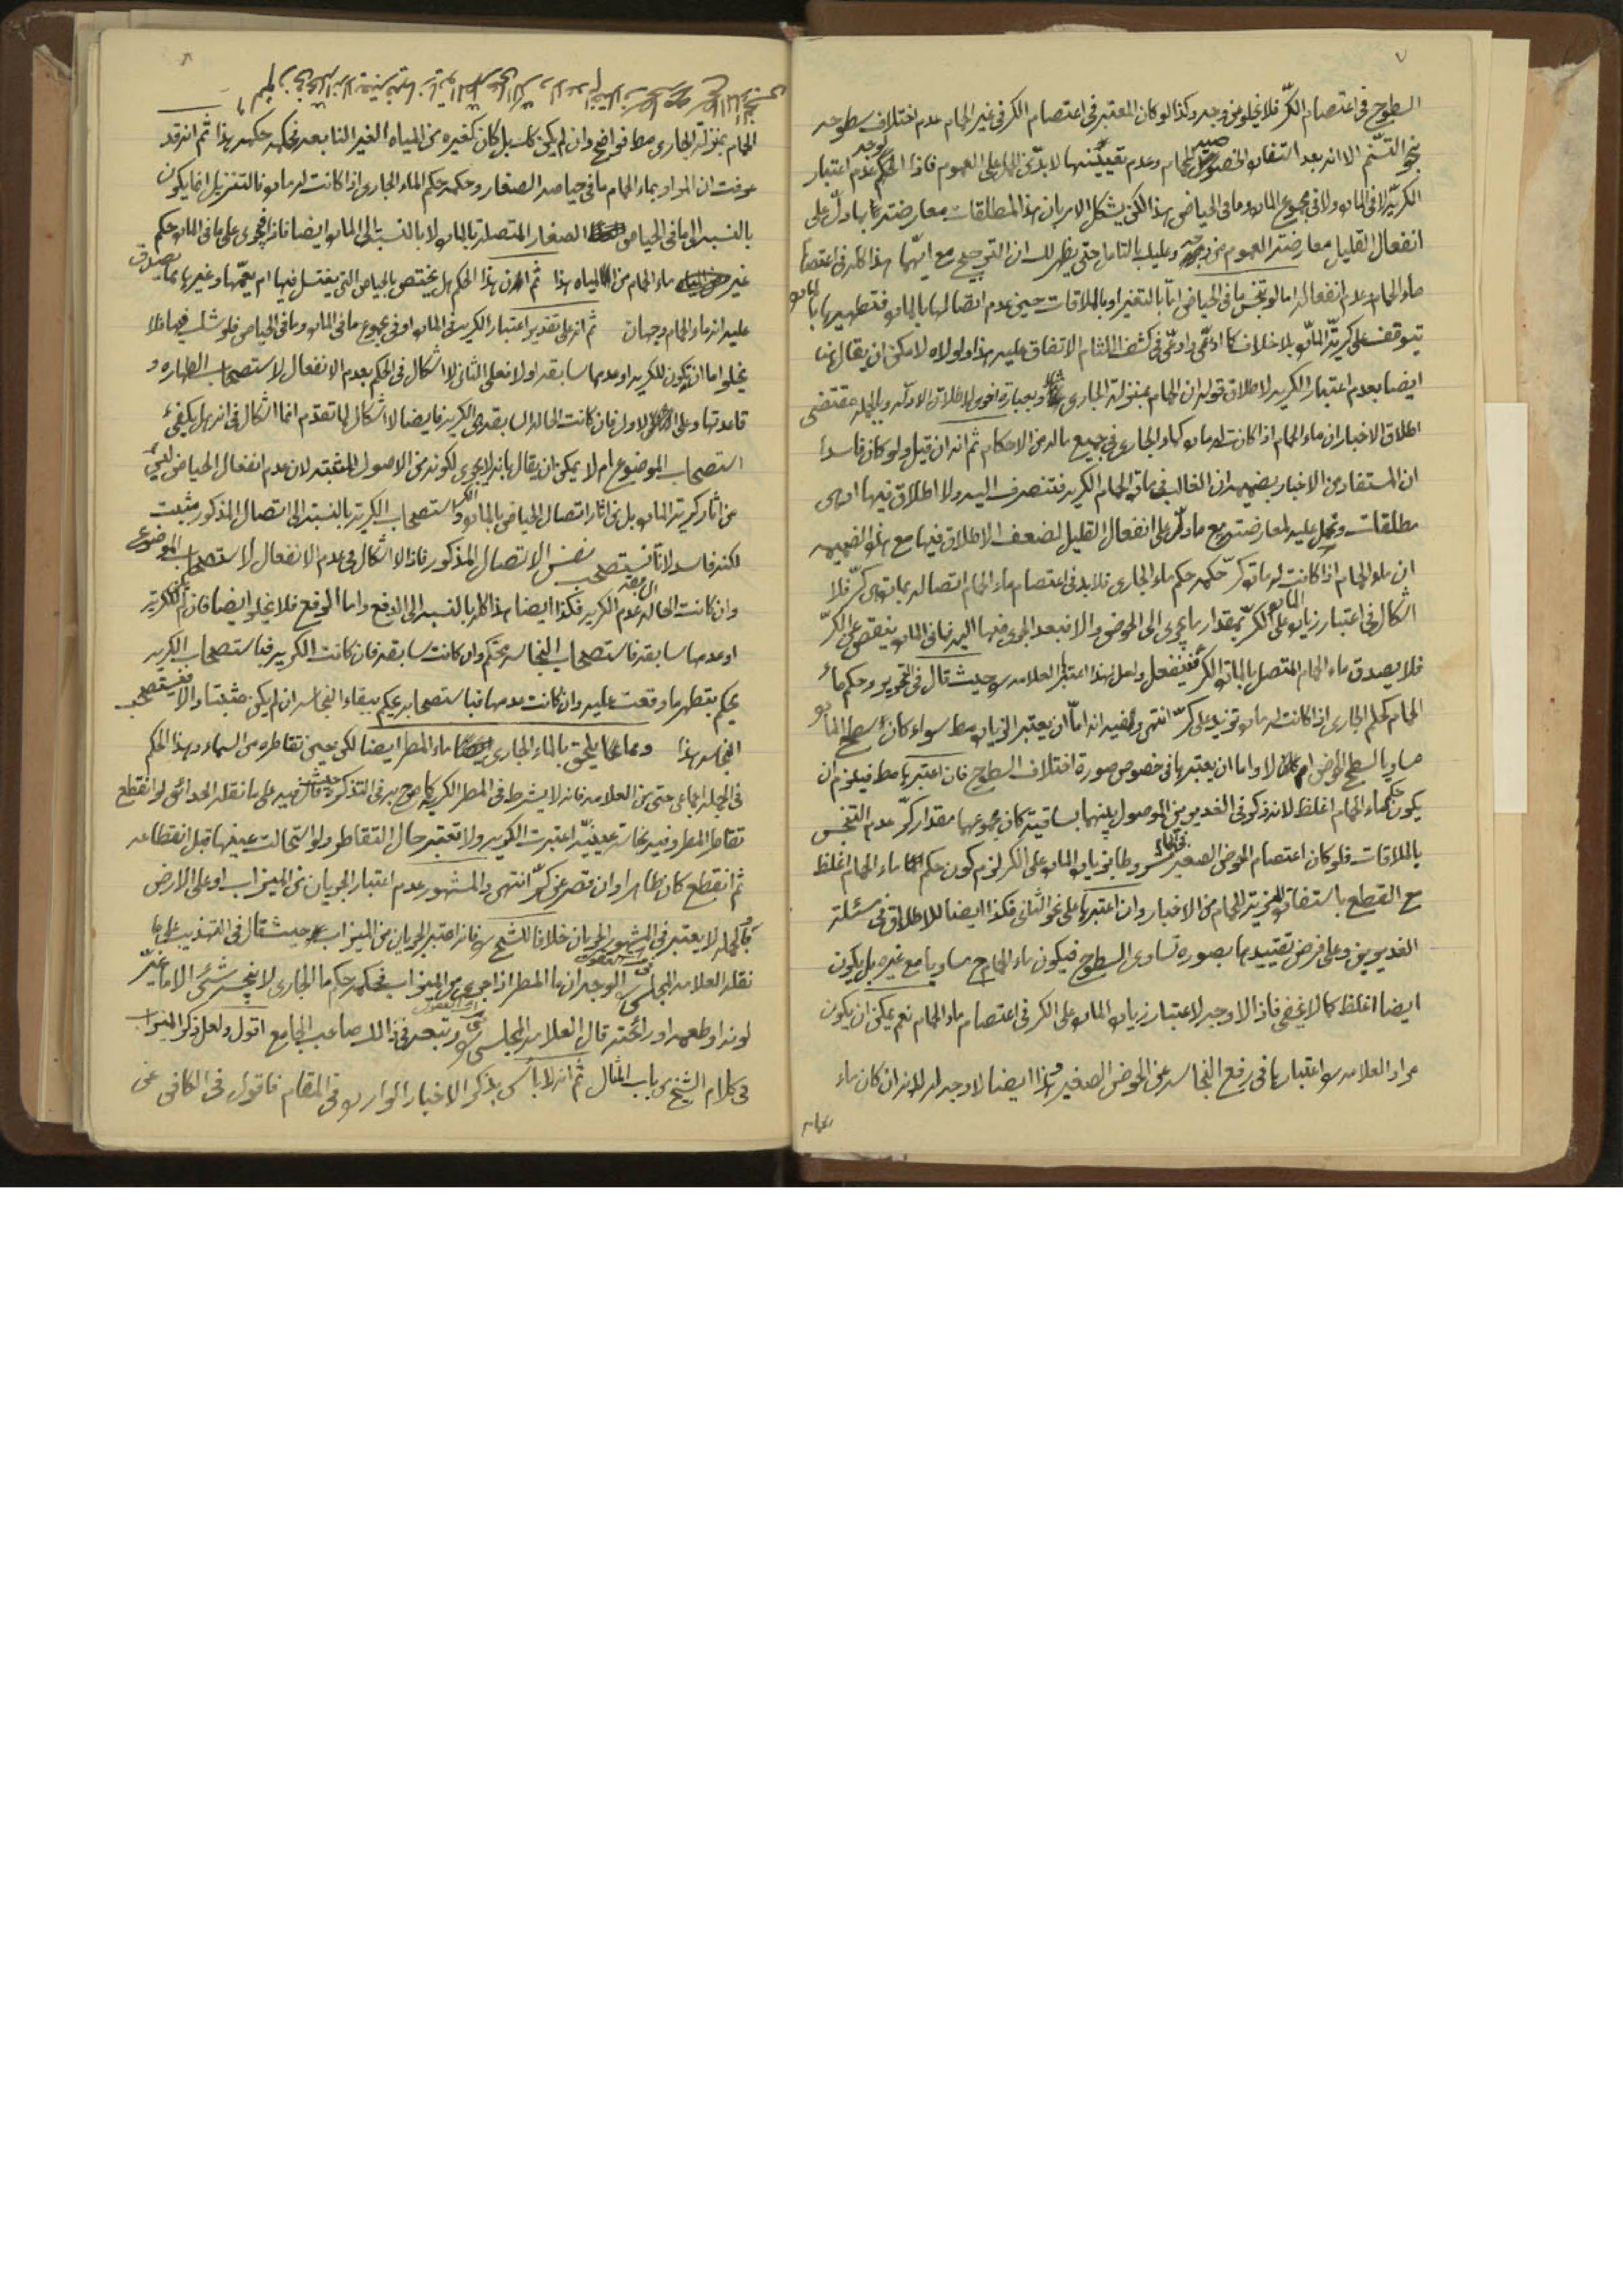 ٧
السطوح في اعتصام الكرّ فلا يخلو من وجه وكذا لو كان المعتبر في اعتصام الكر في غير الحمام عدم اختلاف سطوحه
بنحو التسنّم الا انه بعد استفادة الخصوصية للحمام وعدم تعيّنها لا بدّ من الحمل على العموم فاذا الحكم عدم اعتبار
الكرية لا في المادة ولا في مجموع المادة وما في الحياض هذا لكن يشكل الامر بان هذا المطلقات معارضة بما دلّ على
انفعال القليل معارضة العموم من وجه وعليك بالتامل حتى يظهر لك ان الترجيح مع ايّهما هذا كله في اعتصام
ماء الحمام وعدم انفعاله اما لو تنجس ما في الحياض امّا بالتغير او بالملاقات حين عدم اتصالها بالمادة فتطهيرها بالمادة
يتوقف على كرية المادة بلا خلاف كما ادعى وادعى في كشف اللثام الاتفاق عليه هذا ولولاه لامكن ان يقال هنا
ايضا بعدم اعتبار الكرية لاطلاق قوله ان الحمام بمنزلة الجاري وبعبارة اخرى لاطلاق الادلة وبالجملة مقتضى
اطلاق الاخبار ان ماء الحمام اذا كانت له مادة كماء الجاري في جميع ماله من الاحكام ثم انه ان قيل ولو كان فاسدا
ان المستفاد من الاخبار بضميمة ان الغالب في مادة الحمام الكرية فتنصرف اليه ولا اطلاق فيها او هي
مطلقات وتحمل عليه لمعارضته مع ما دلّ على انفعال القليل لضعف الاطلاق فيها مع هذه الضميمه
ان ماء الحمام اذا كانت له مادة كرّ حكمه حكم ماء الجاري فلا بد في اعتصام ماء الحمام اتصاله بمادة هي كرّ فلا
اشكال في اعتبار زيادة المادة على الكرّ بمقدار ما يجري الى الحوض والا فبعد الجري منها اليه فما في المادة ينقص عن الكرّ
فلا يصدق ماء الحمام المتصل بالمادة الكر فينفعل ولعل لهذا اعتبر العلامه ره حيث قال في التحرير وحكم ماء
الحمام كحكم الجاري اذا كانت له مادة تزيد على كرّ انتهى وفيه انه امّا ان يعتبر الزيادة مط سواء كان سطح المادة
مساويا لسطح الحوض ام لا واما ان يعتبرها في خصوص صورة اختلاف السطوح فان اعتبرها مط فيلزم ان
يكون حكم ماء الحمام اغلظ لانه ذكر في الغديرين الموصول بينهما بساقية كان مجموعهما مقدار كرّ عدم التنجس
بالملاقات فلو كان اعتصام الحوض الصغير في الحمام مشروطا بزيادة المادة على الكر لزم كون حكم ماء الحمام اغلظ
مع القطع باستفادة المزية للحمام من الاخبار وان اعتبرها على نحو الثاني فكذا ايضا للاطلاق في مسئلة
الغديرين وعلى فرض تقييدها بصورة تساوي السطوح فيكون ماء الحمام ح مساويا مع غيره بل يكون
ايضا اغلظ كما لا يخفى فاذا لا وجه لاعتبار زيادة المادة على الكر في اعتصام ماء الحمام نعم يمكن ان يكون
مراد العلامه ره اعتبارها في رفع النجاسه عن الحوض الصغير وهذا ايضا لا وجه له لانه ان كان ماء
الحمام
٨
الحمام بمنزلة الجاري مط فواضح وان لم يكن كك بل كان كغيره من المياه الغير النابعه فحكمه حكمه هذا ثم انه قد
عرفت ان المراد بماء الحمام ما في حياضه الصغار وحكمه حكم الماء الجاري اذا كانت له مادة فالتنزيل انما يكون
بالنسبه الى ما في الحياض الصغار المتصلة بالمادة لا بالنسبة الى المادة ايضا فاذا فيجري على ما في المادة حكم
غير ماء الحمام من المياه هذا ثم ان هذا الحكم هل يختص بالحياض التي يغتسل فيها ام يعمّها وغيرها مما يصدق
عليه انه ماء الحمام وجهان ثم انه على تقدير اعتبار الكرية في المادة او في مجموع ما في المادة وما في الحياض فلو شك فيها فلا
يخلو اما ان تكون للكرية او عدمها سابقه او لا فعلى الثاني لا اشكال في الحكم بعدم الانفعال لاستصحاب الطهارة و
قاعدتها وعلى الاول فان كانت الحالة السابقه هي الكرية فايضا لا اشكال لما تقدم انما اشكال في انه هل يكفي
استصحاب الموضوع ام لا يمكن ان يقال بانه لا يجري لكونه من الاصول المثبته لان عدم انفعال الحياض ليس
من اثار كرية المادة بل من اثار اتصال الحياض بالمادة الكر واستصحاب الكرية بالنسبة الى اتصال المذكور مثبت
لكنه فاسد لانّا نستصحب نفس الاتصال المذكور فاذا لا اشكال في عدم الانفعال لاستصحاب الموضوع
وان كانت الحالة السابقه عدم الكرية فكذا ايضا هذا كله بالنسبه الى الدفع واما الرفع فلا يخلو ايضا فان لم تكن للكرية
او عدمها سابقه فاستصحاب النجاسة محكّم وان كانت سابقه فان كانت الكرية فباستصحاب الكرية
يحكم بتطهير ما وقعت عليه وان كانت عدمها فباستصحابه يحكم ببقاء النجاسه ان لم يكن مثبتا والا فنستصحب
النجاسه هذا ومما يلحق بالماء الجاري ماء المطر ايضا لكن حين تقاطره من السماء وهذا الحكم
في الجملة اجماعي حتى من العلامه فانه لا يشترط في المطر الكرية كما صرح به في التذكرة حيث قال فيه على ما نقله الحدائق لو انقطع
تقاطر المطر وفيه نجاسة عينيّة اعتبرت الكرية ولا تعتبر حال التقاطر ولو استحالت عينها قبل انقطاعه
ثم انقطع كان طاهرا وان قصر عن كرّ انتهى والمشهور عدم اعتبار الجريان من الميزاب او على الارض
وبالجملة لا يعتبر في المشهور الجريان خلافا للشيخ ره فانه اعتبر الجريان من الميزاب حيث قال في التهذيب على ما
نقله العلامه المجلسي ره في مرآة العقول الوجه ان ماء المطر اذا جرى من الميزاب فحكمه حكم ماء الجاري لا ينجسه شئ الا ما غيّر
لونه او طعمه او رائحته قال العلامه المجلسي ره في مرآة العقول وتبعه في ذلك صاحب الجامع اقول ولعل ذكر الميزاب
في كلام الشيخ من باب المثال ثم انه لا باس بذكر الاخبار الواردة في المقام فاقول في الكافي عن